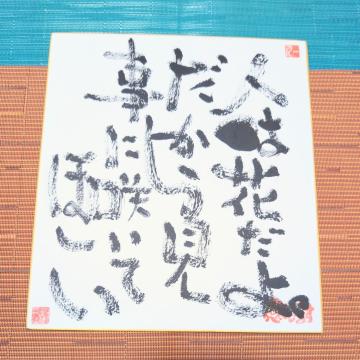 人は花だよ。
だから見
事に咲いて
ほしい